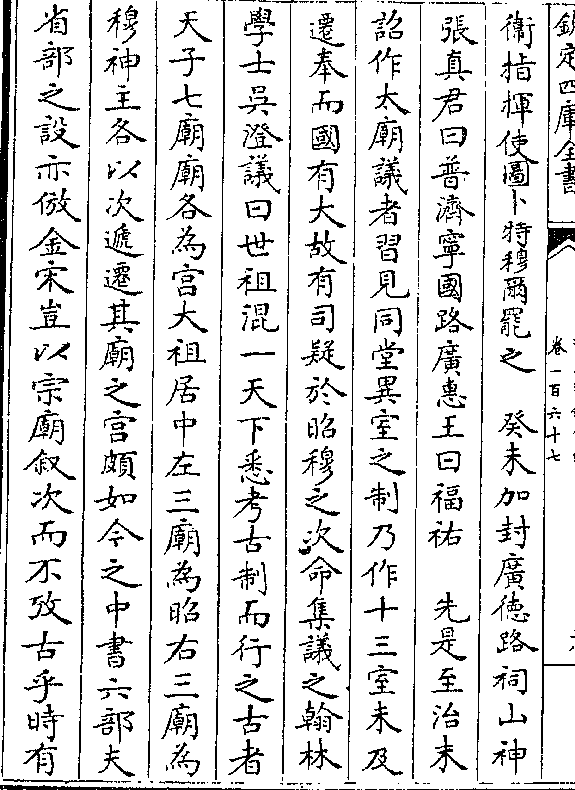 欽定四庫全書
卷一百六十七
衛指揮使圖卜特穆爾罷之　癸未加封廣徳路祠山神
張真君曰普濟寧國路廣惠王曰福祐　先是至治末
詔作太廟議者習見同堂異室之制乃作十三室未及
遷奉而國有大故有司疑於昭穆之次命集議之翰林
學士吳澄議曰世祖混一天下悉考古制而行之古者
天子七廟廟各為宫大祖居中左三廟為昭右三廟為
穆神主各以次遞遷其廟之宫頗如今之中書六部夫
省部之設亦倣金宋豈以宗廟叙次而不攷古乎時有